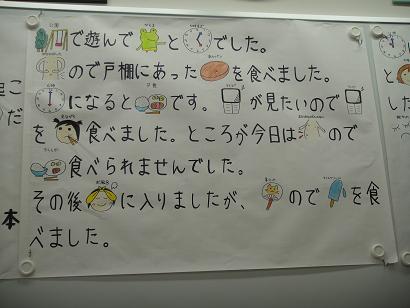 で遊んで と でした。
ので戸棚にあった を食べました。
になると です。 が見たいので
を 食べました。ところが今日は ので
食べられませんでした。
その後 に入りましたが、 ので を食
べました。
本